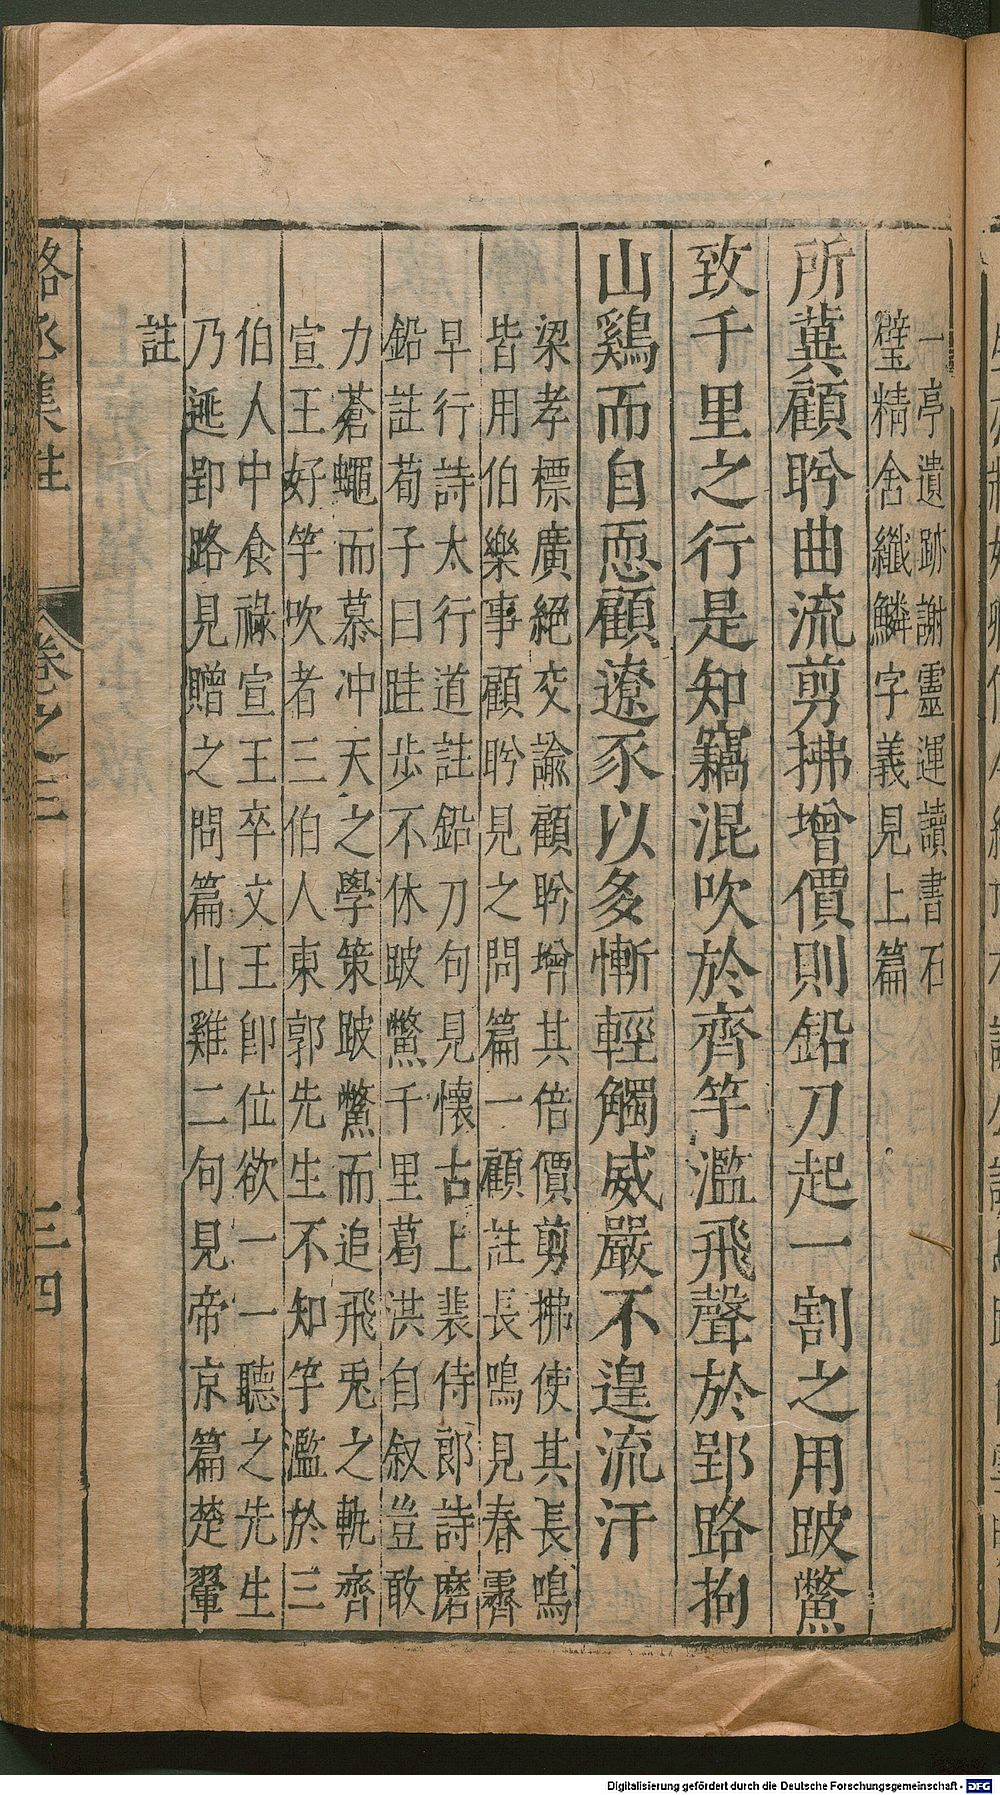 一亭遺跡謝靈運讀書石
壁精舍纖鱗字義見上篇
所冀顧盻曲流剪拂增價則鉛刀起一割之用跛鱉
致千里之行是知竊混吹於齊竽濫飛聲於郢路拘
山鷄而自恧顧遼豕以多慚輕觸威嚴不遑流汗
梁孝標廣絕交論顧盻增其倍價剪拂使其長鳴
皆用伯樂事顧盻見之問篇一顧註長鳴見春霽
早行詩太行道註鉛刀句見懷古上裴侍郎詩磨
鉛註荀子曰跬步不休跛鱉千里葛洪自敘豈敢
力蒼蠅而慕冲天之學策跛鱉而追飛兎之軌齊
宣王好竽吹者三伯人東郭先生不知竽濫於三
伯人中食祿宣王卒文王卽位欲一一聽之先生
乃逃郢路見贈之問篇山雞二句見帝京篇楚翬
註
駱丞集註
卷之三
三四
Digitalisierung gefördert durch die Deutsche Forschungsgemeinschaft - DFG